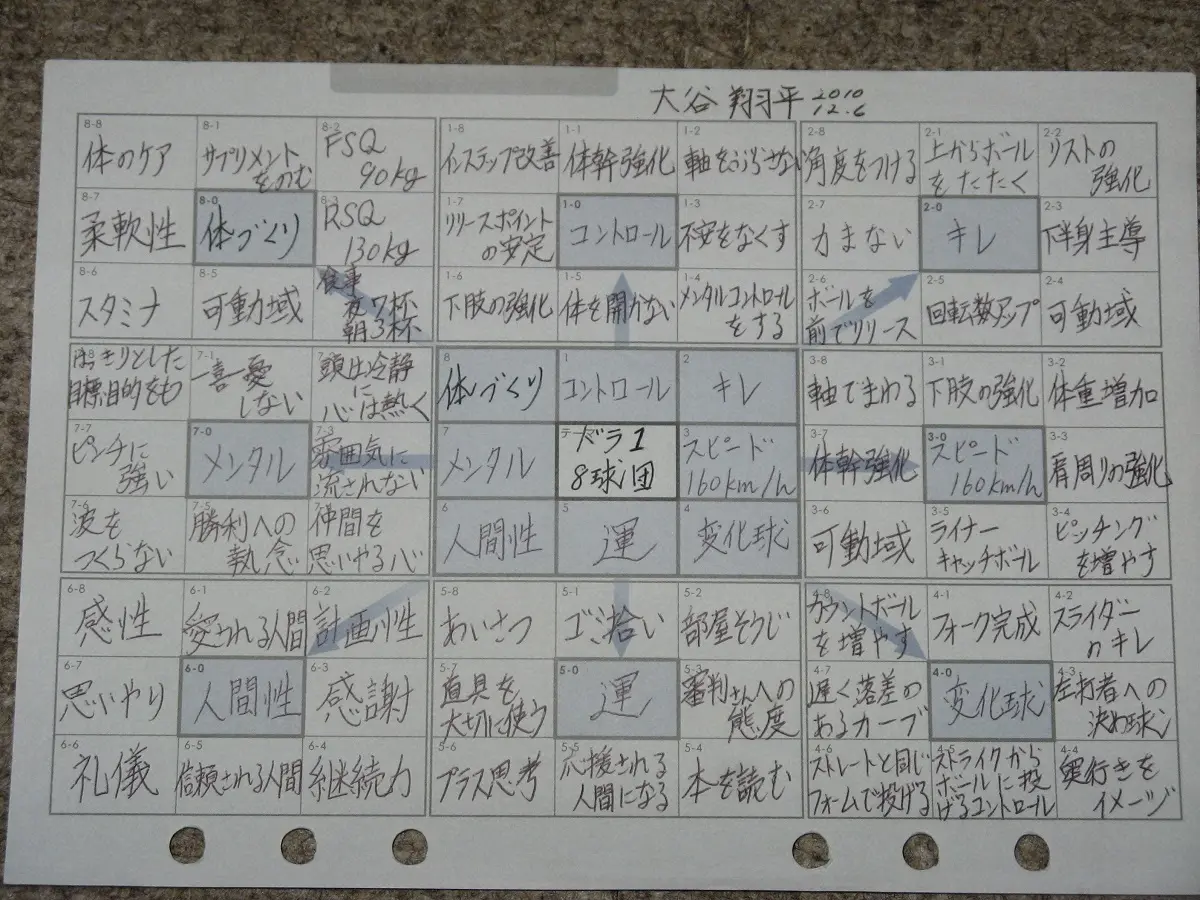 大谷 翔平 2010
12.6
8-8
体のケア
8-1
サプリメント
をのむ
8-2
FSQ
90kg
8-7
柔軟性
8-0
体づくり
8-3
RSQ
130kg
8-6
スタミナ
8-5
可動域
食事
夜7杯
朝3杯
1-8
インステップ改善
1-1
体幹強化
1-2
軸をぶらさない
1-7
リリースポイント
の安定
1-0
コントロール
1-3
不安をなくす
1-6
下肢の強化
1-5
体を開かない
1-4
メンタルコントロール
をする
2-8
角度をつける
2-1
上からボール
をたたく
2-2
リストの
強化
2-7
力まない
2-0
キレ
2-3
下半身主導
2-6
ボールを
前でリリース
2-5
回転数アップ
2-4
可動域
はっきりとした
目標、目的をも
7-1
一喜一憂
しない
7-2
頭は冷静
に
心は熱く
7-7
ピンチに
強い
7-0
メンタル
7-3
雰囲気に
流されない
7-6
波を
つくらない
7-5
勝利への
執念
7-4
仲間を
思いやる心
8
体づくり
1
コントロール
2
キレ
7
メンタル
テーマ
ドラ1
8球団
3
スピード
160km/h
6
人間性
5
運
4
変化球
3-8
軸でまわる
3-1
下肢の強化
3-2
体重増加
3-7
体幹強化
3-0
スピード
160km/h
3-3
肩周りの強化
3-6
可動域
3-5
ライナー
キャッチボール
3-4
ピッチング
を増やす
6-8
感性
6-1
愛される人間
6-2
計画性
6-7
思いやり
6-0
人間性
6-3
感謝
6-6
礼儀
6-5
信頼される人間
6-4
継続力
5-8
あいさつ
5-1
ゴミ拾い
5-2
部屋そうじ
5-7
道具を
大切に使う
5-0
運
5-3
審判さんへの
態度
5-6
プラス思考
5-5
応援される
人間になる
5-4
本を読む
4-8
カウントボール
を増やす
4-1
フォーク完成
4-2
スライダー
のキレ
4-7
遅く落差の
あるカーブ
4-0
変化球
4-3
左打者への
決め球
4-6
ストレートと同じ
フォームで投げる
4-5
ストライクから
ボールに投
げるコントロール
4-4
奥行きを
イメージ